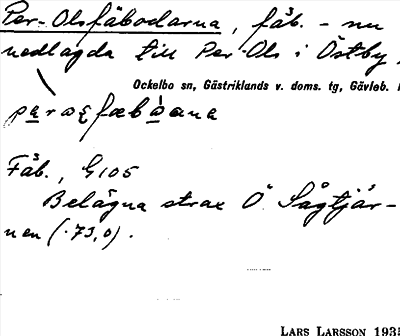 Per-Olsfäbodarna, fäb. - nu
nedlagda till Per-Ols i Östby,
Ockelbo sn, Gästriklands v. doms. tg, Gävleb.
Fäb., G105
Belägna strax Ö. Sågtjär-
nen (.73,0).
LARS LARSSON 1935